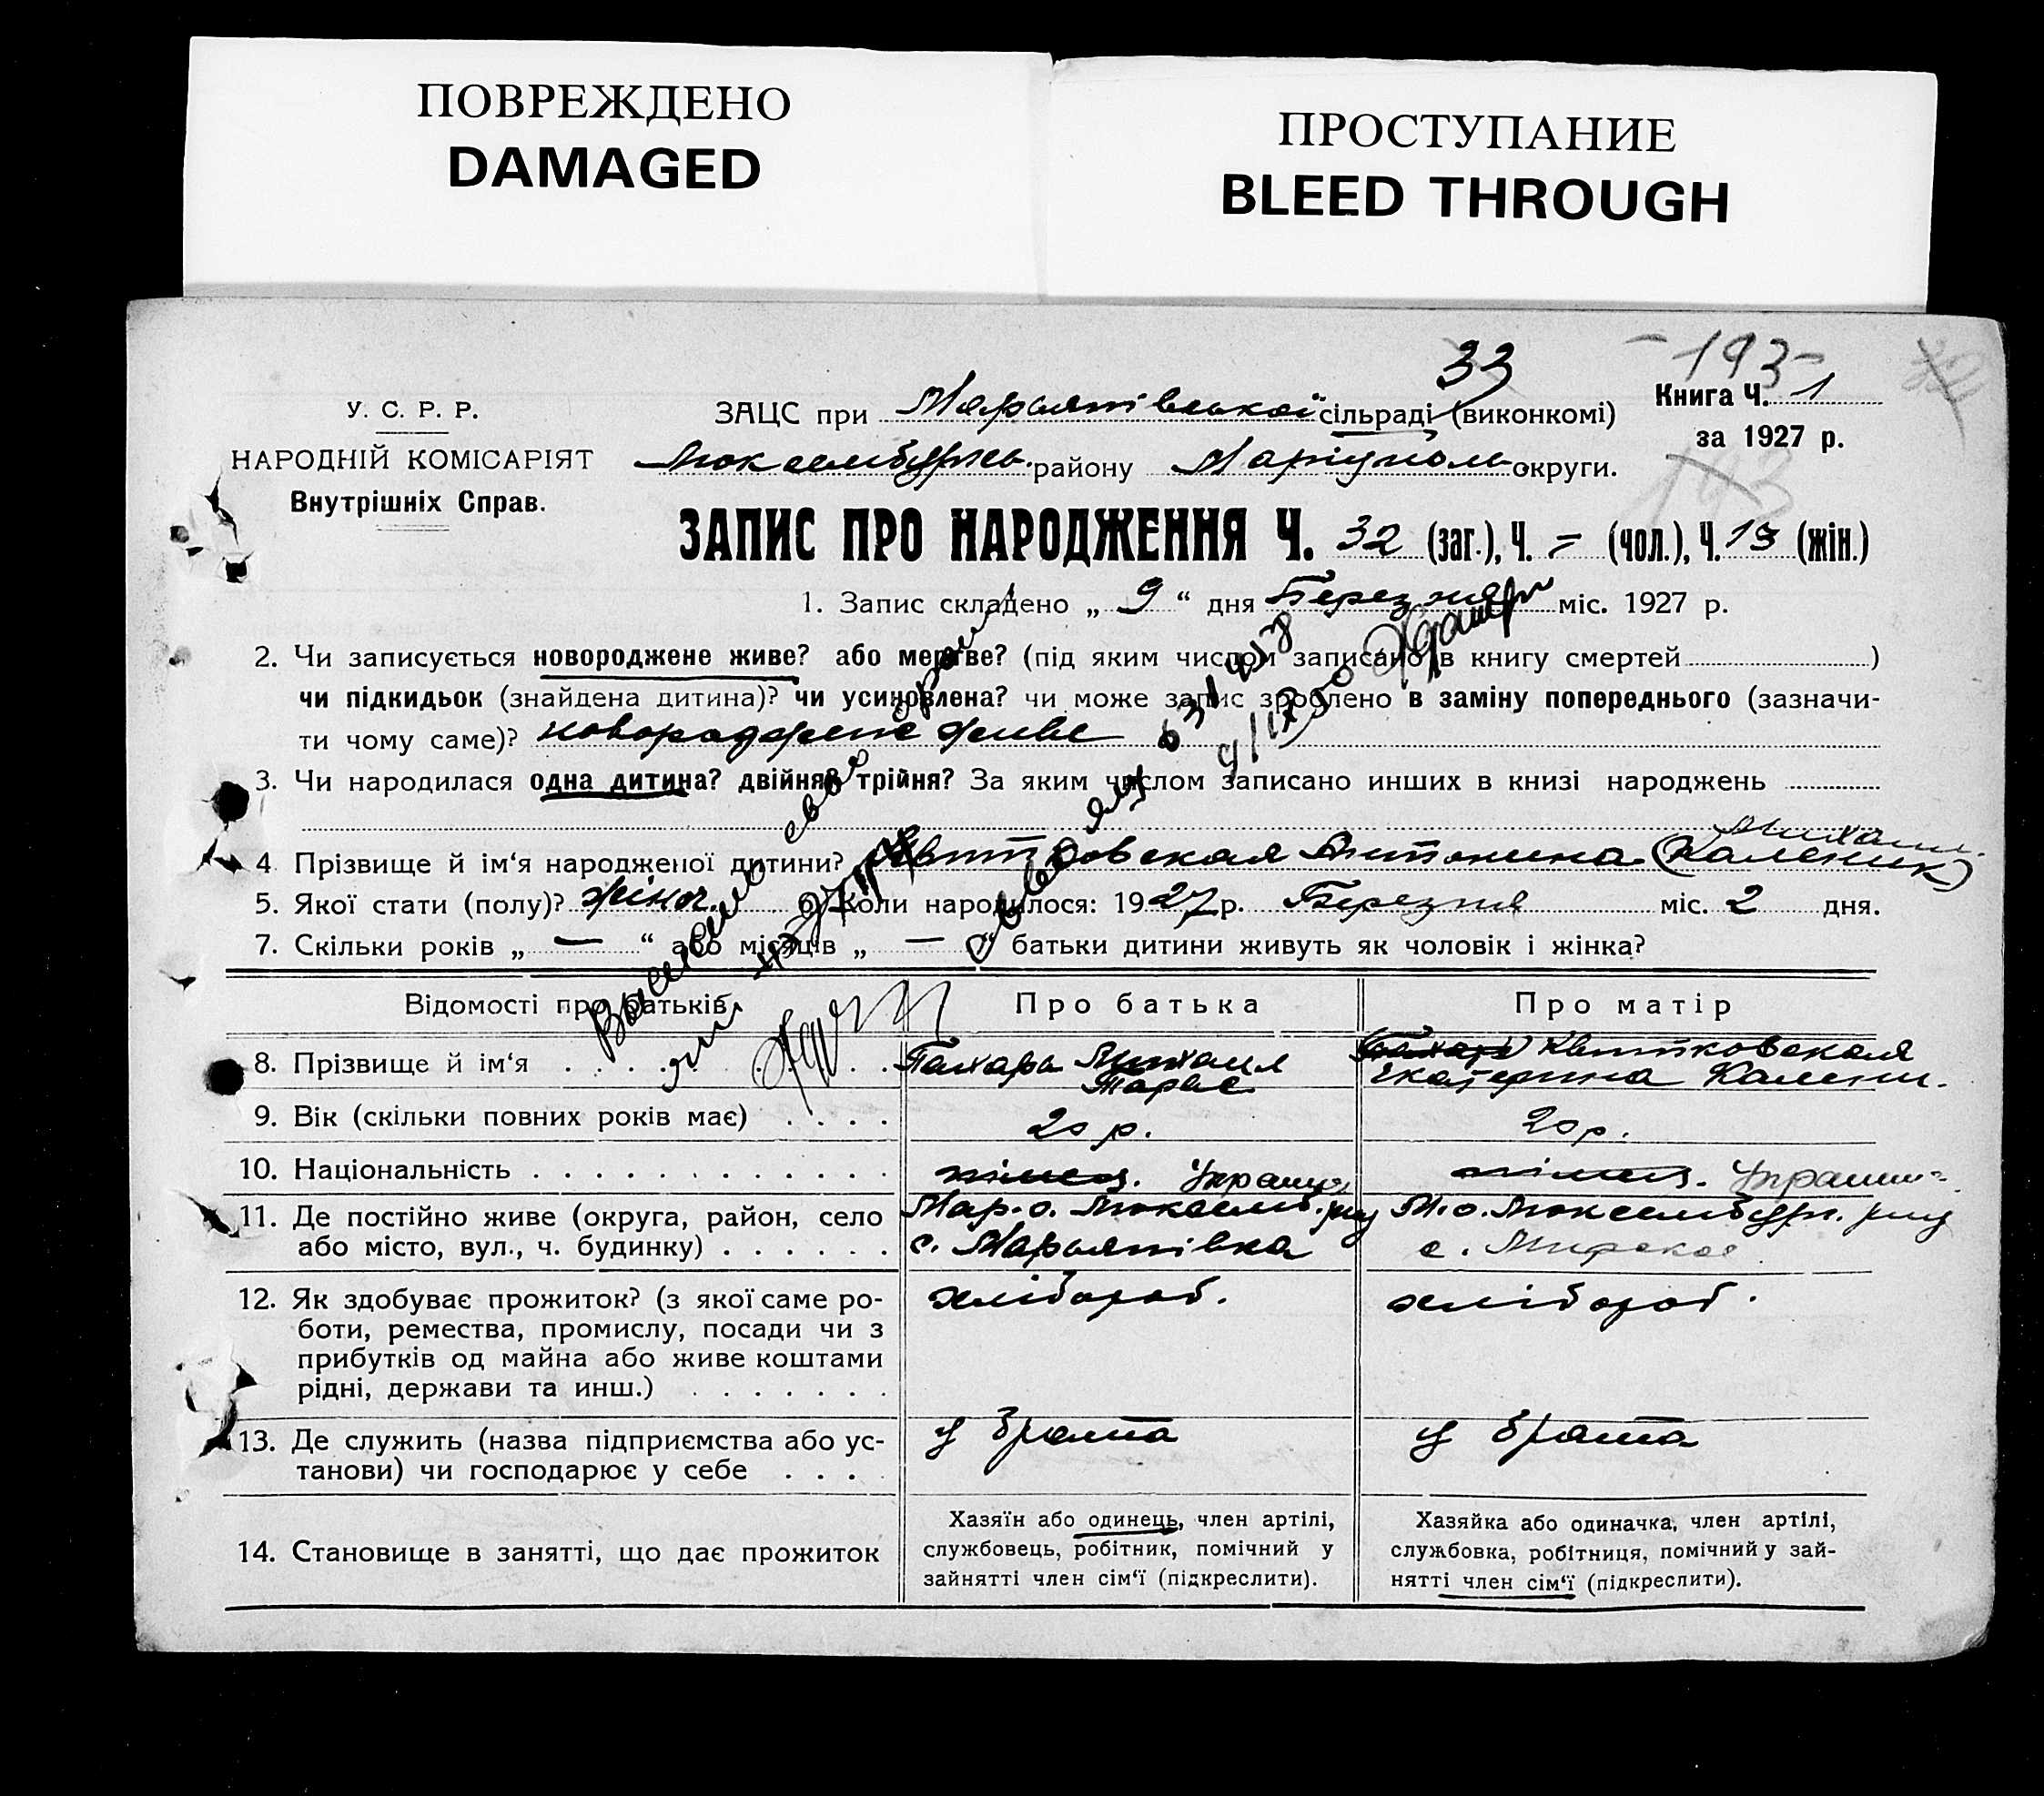 ПОВРЕЖДЕНО
DAMAGED
ПРОСТУПАНИЕ
BLEED THROUGH
33
-193-
У. С. Р. Р.
НАРОДНІЙ КОМІСАРІЯТ
Внутрішніх Справ.
ЗАЦС при Марьянівської сільраді (виконкомі)
Люксембурзь. району Маріуполь. округи.
Книга Ч. 1
за 1927 р.
193
ЗАПИС ПРО НАРОДЖЕННЯ Ч. 32 (заг.), Ч. = (чол.), Ч. 13 (жін.)
1. Запис складено „ 9 “ дня Березня міс. 1927 р.
2. Чи записується новороджене живе? або мертве? (під яким числом записано в книгу смертей )
чи підкидьок (знайдена дитина)? чи усиновлена? чи може запис зроблено в заміну попереднього (зазначи-
ти чому саме)? живе
3. Чи народилася одна дитина? двійня? трійня? За яким числом записано инших в книзі народжень
4 Прізвище й ім‘я народженої дитини? Квитковская Антонина (Каленик)
5. Якої стати (полу)? жіноч. 6. Коли народилося: 1927 р. Березня міс. 2 дня.
7. Скільки років „ — “ або місяців „ — “ батьки дитини живуть як чоловік і жінка?
Відомості про батьків
Про батька
Про матір
8. Прізвище й ім‘я
Михаил
Тарас
Квитковская
Екатерина Калени.
9. Вік (скільки повних років має)
20 р.
20 р.
10. Національність
німец. Україн.
німец. Україн.
11. Де постійно живе (округа, район, село
або місто, вул., ч. будинку)
Мар. о. Люксемб. р-ну
с. Марьянівка
М. о. Люксембург. р-ну
с.
12. Як здобуває прожиток? (з якої саме ро-
боти, ремества, промислу, посади чи з
прибутків од майна або живе коштами
рідні, держави та инш.)
хлібороб.
хлібороб.
13. Де служить (назва підприємства або ус-
танови) чи господарює у себе
у брата
у брата
14. Становище в занятті, що дає прожиток
Хазяїн або одинець, член артілі,
службовець, робітник, помічний у
зайнятті член сім‘ї (підкреслити).
Хазяйка або одиначка, член артілі,
службовка, робітниця, помічний у зай-
нятті член сім‘ї (підкреслити).